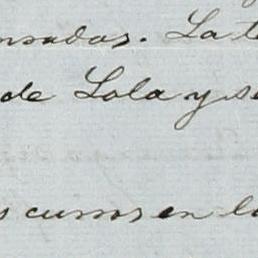 nsadas. La t
de Lola y se
s cursos en la